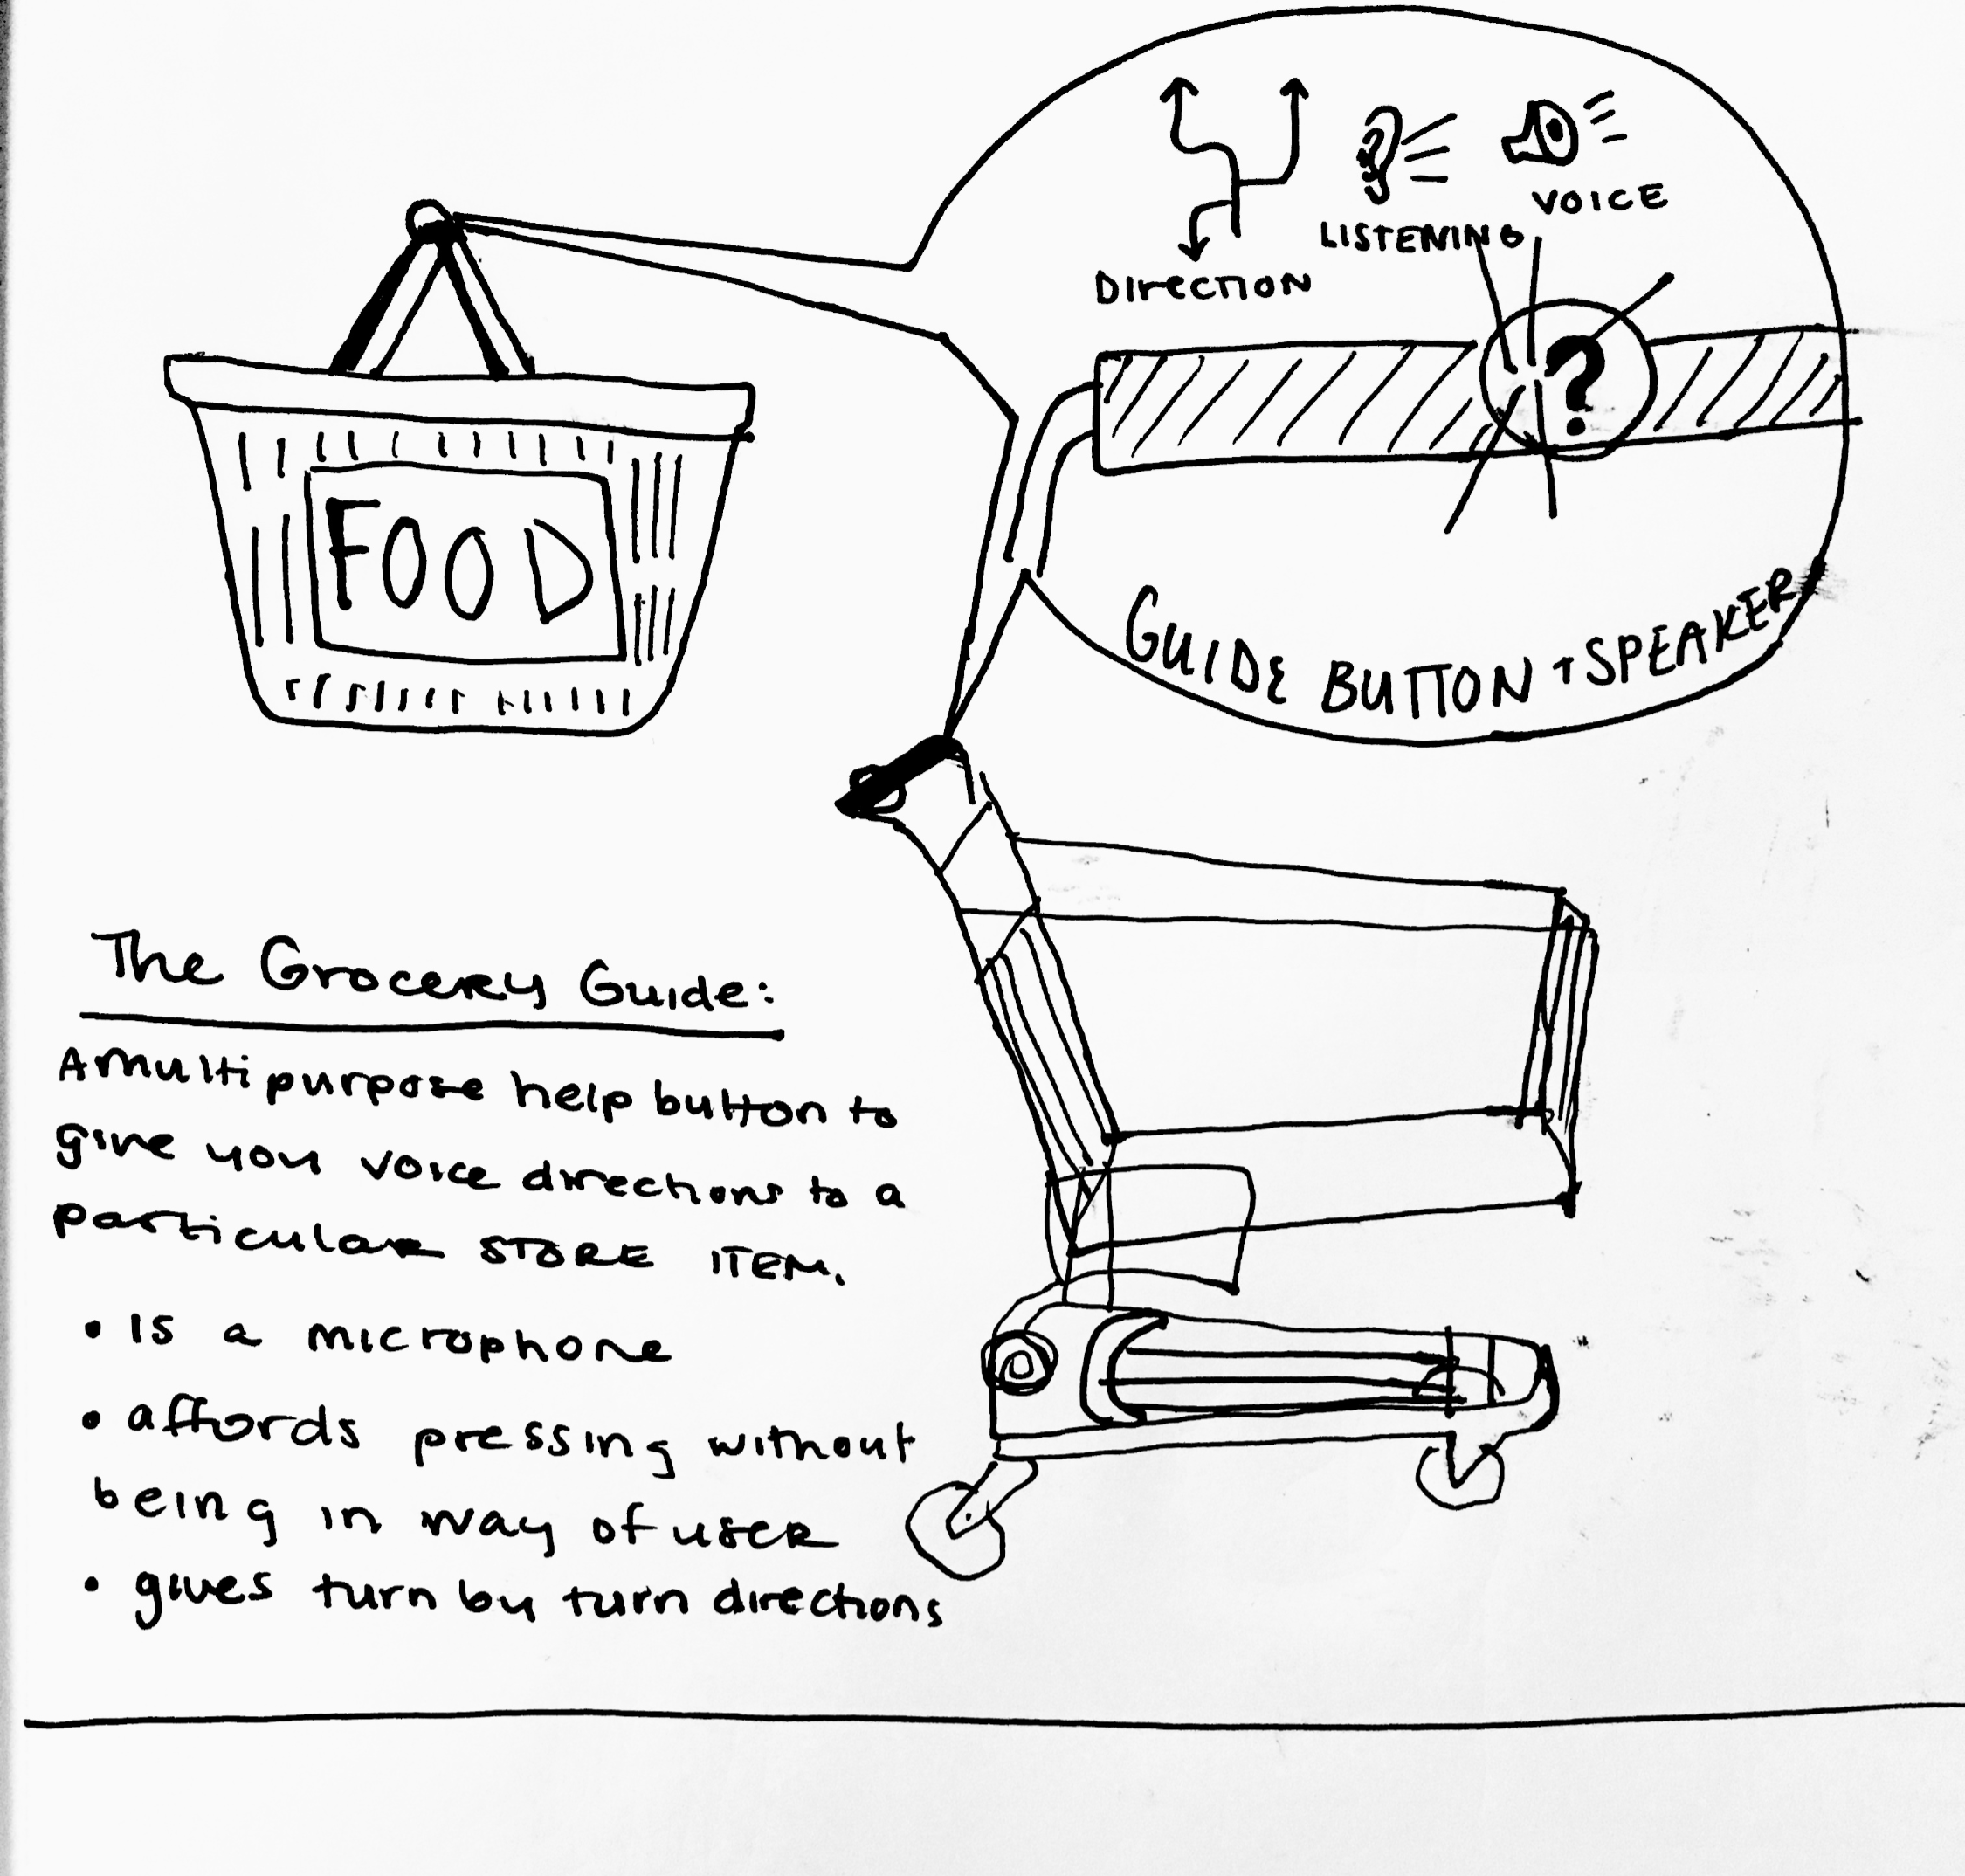 DIRECTION
LISTENING
VOICE
?
GUIDE BUTTON + SPEAKER
FOOD
The Grocery Guide:
A multi purpose help button to
give you voice directions to a
particular STORE ITEM.
• is a microphone
• affords pressing without
being in way of user
• gives turn by turn directions